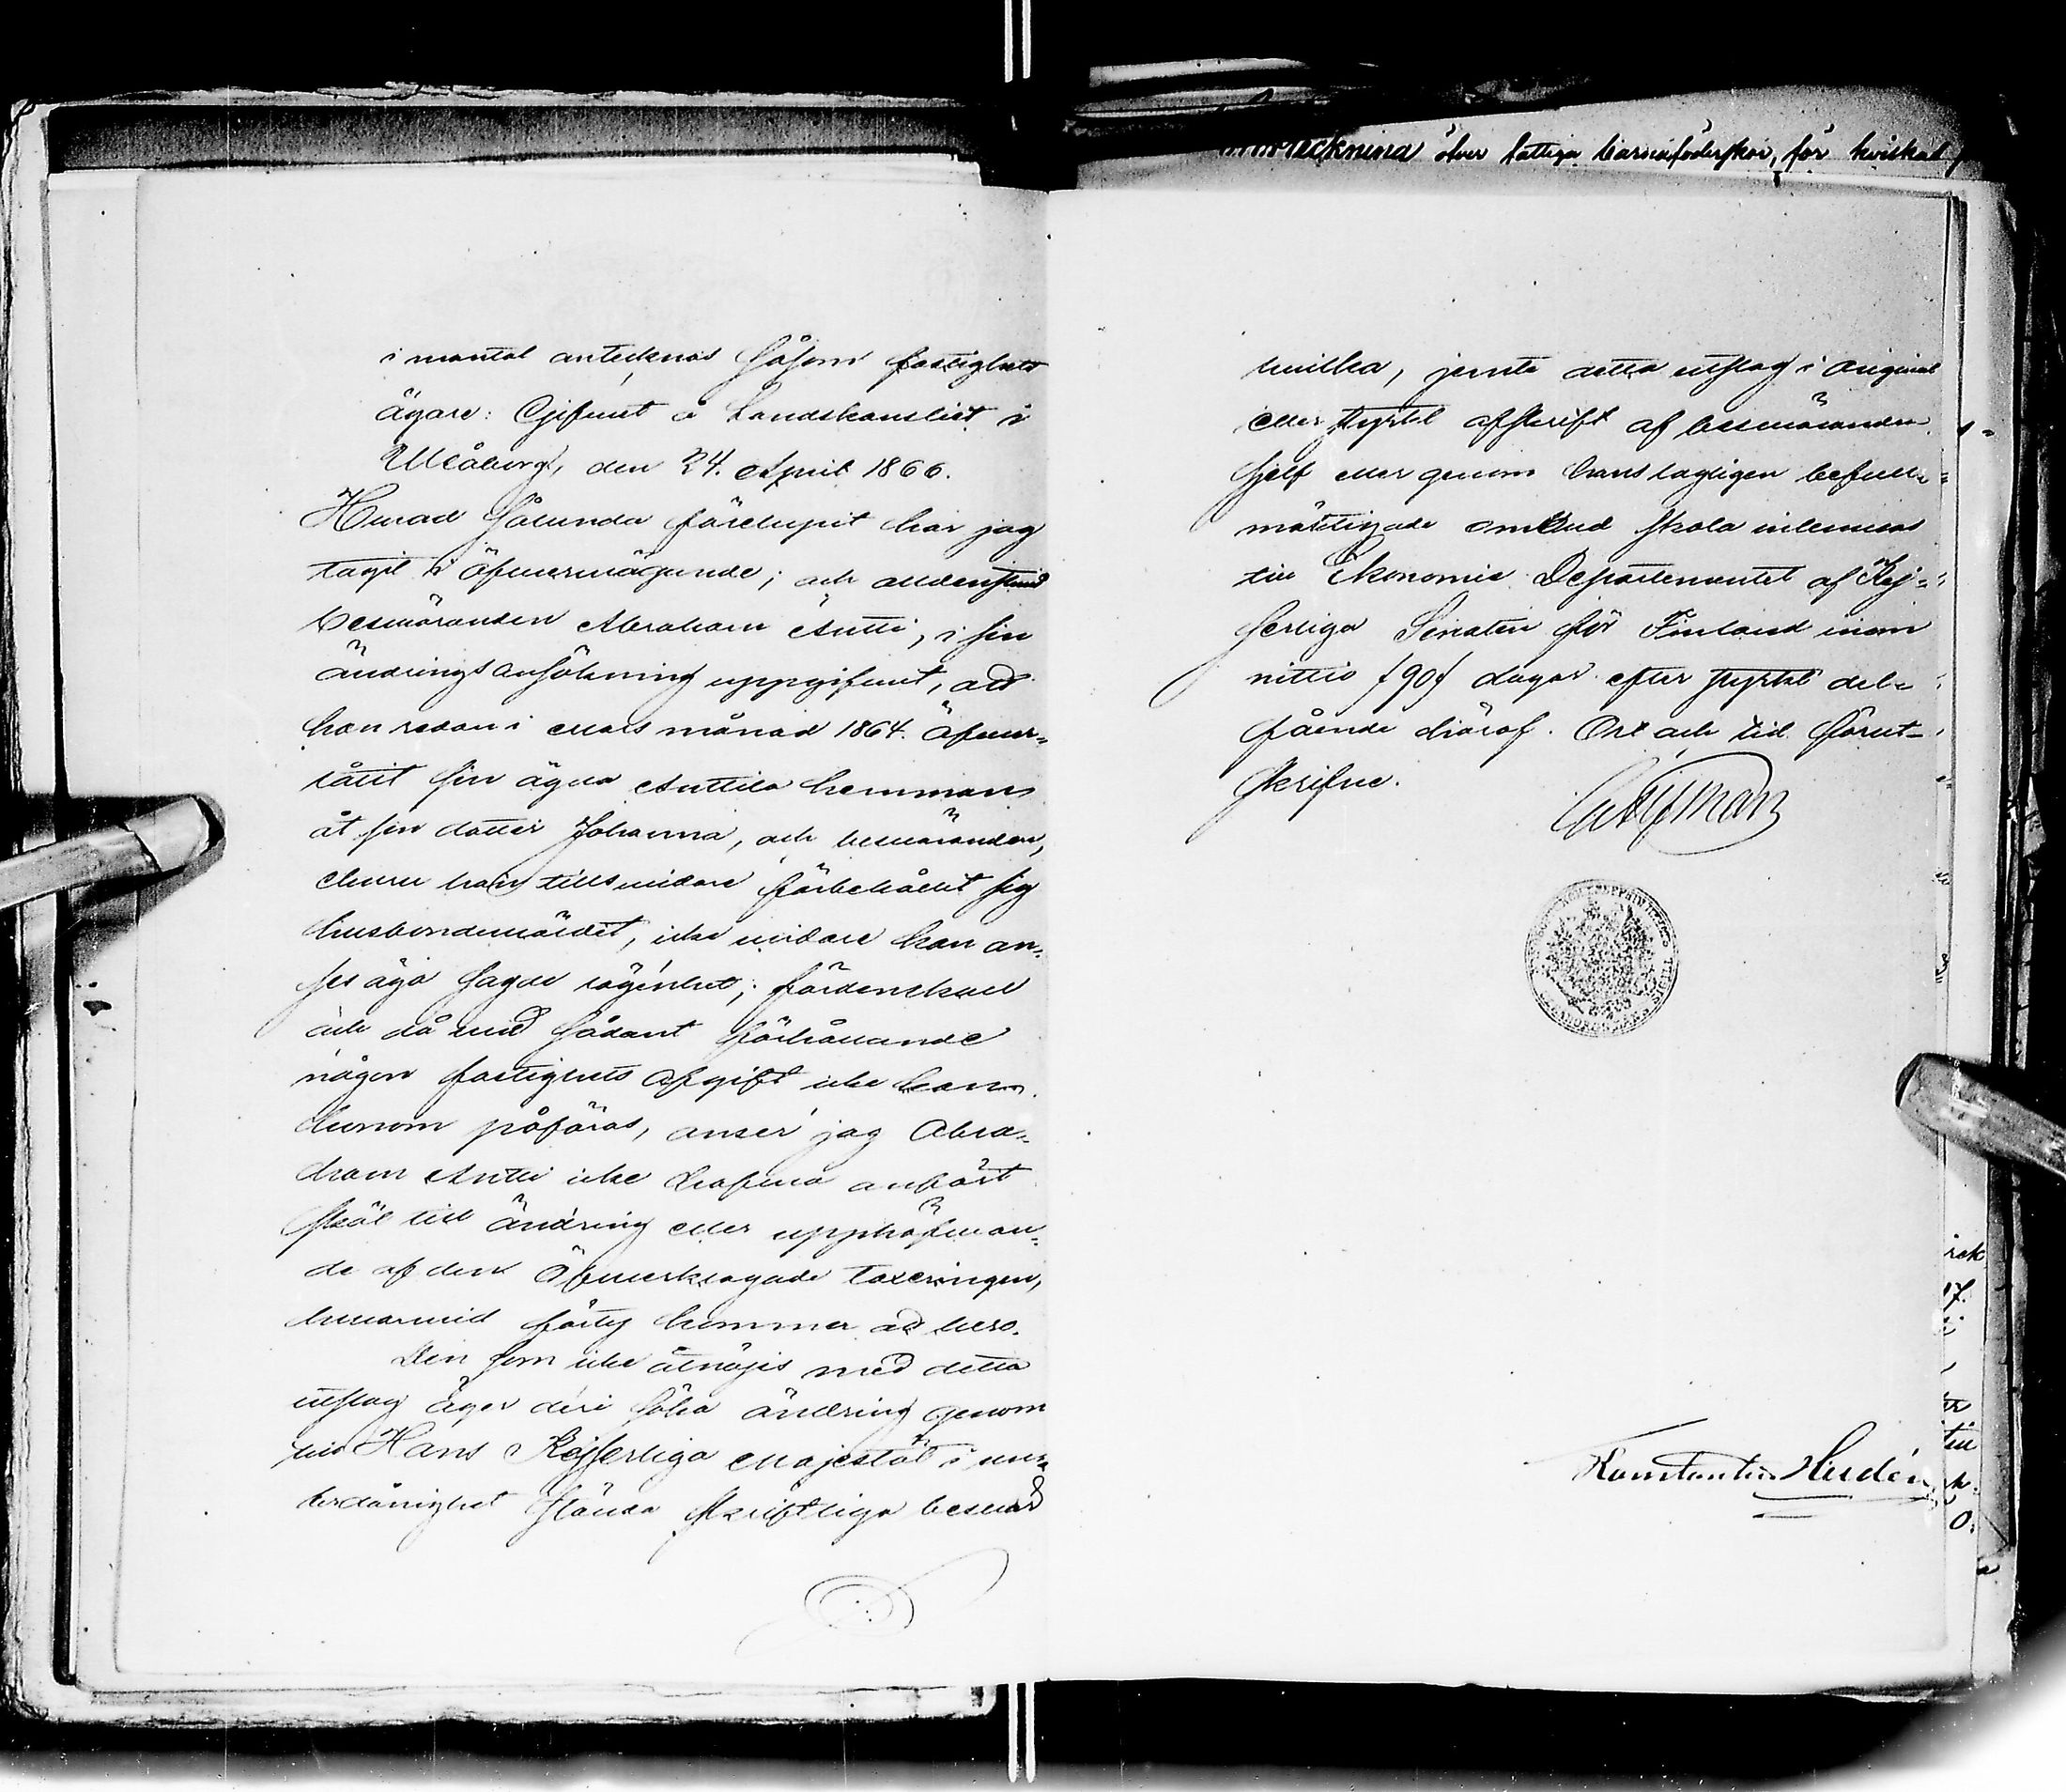 i mantal antecknas såsom fastighets
ägare: Gifwet å Landskansliet i
Uleåborg, den 24. April 1866.
Hwad sålunda förelupit har jag
tagit i öfwerwägande; och alldenstund
beswäranden Abraham Antti, i sin
ändringsansökning uppgifwit, att
han redan i mars månad 1864. öfwer-
låtit sin ägda Anttila hemman
åt sin dotter Johanna, och beswäranden,
ehuru han tillswidare förbehållit sig
husbondewäldet, icke widare kan an-
ses äga sagde lägenhet; fördenskull
och då wid sådant förhållande
någon fastighets afgift icke kan
honom påföras, anser jag Abra-
ham Antti icke hafwa anfört
skäl till ändring eller upphäfwan-
de af den öfwerklagade taxeringen,
hwarwid förty kommer att bero.
Den som icke åtnöjes med detta
utslag äger deri söka ändring genom
hos Hans Kejserliga Majestät i un-
derdånighet stälda skriftliga beswär
förteckning över fattiga barnaföderskor, för hvilka
hwilka, jemte detta utslag i original
eller styrkt afskrift af beswäranden
sjelf eller genom hans lagligen befull-
mäktigade ombud skola inlemnas
till Ekonomie Departementet af Kej-
serliga Senaten för Finland inom
nittio (90) dagar efter styrkt del-
fående häraf. Ort och tid förut-
skrifne.
Konstantin